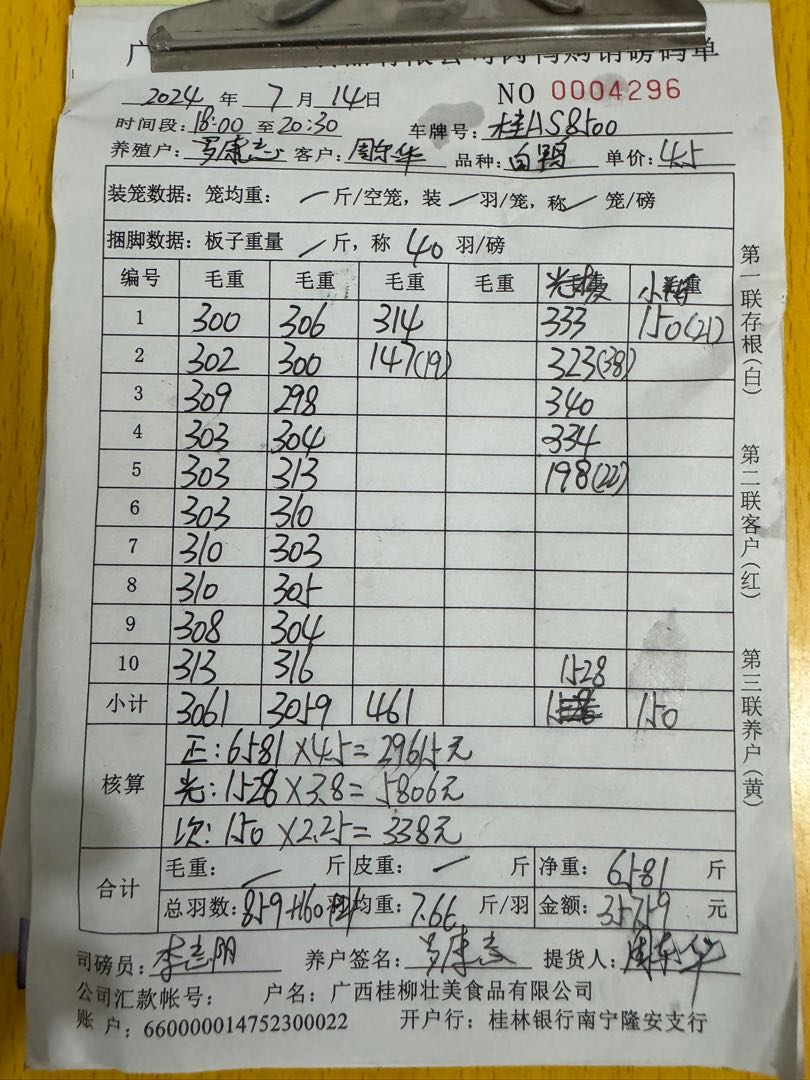 购销磅码单
2024 年 7 月 14 日 NO 0004296
时间段: 18:00 至 20:30 车牌号: 桂AS8500
养殖户: 罗康志 客户: 周尔华 品种: 白鸭 单价: 4.5
装笼数据: 笼均重: 一 斤/空笼, 装 一 羽/笼, 称 一 笼/磅
捆脚数据: 板子重量 一 斤, 称 40 羽/磅
编号 毛重 毛重 毛重 毛重 光 小
1 300 306 314 333 150(21)
2 302 300 147(19) 323(38)
3 309 298 340
4 303 304 334
5 303 313 198(22)
6 303 310
7 310 303
8 310 305
9 308 304
10 313 316 1528
小计 3061 3059 461 150
核算
正: 6581×4.5=29615元
光: 1528×3.8=5806元
次: 150×2.25=338元
合计
毛重: 一 斤 皮重: 一 斤 净重: 6581 斤
总羽数: 859+160 (21) 均重: 7.66 斤/羽 金额: 35759 元
司磅员: 李志阴 养户签名: 罗康志 提货人: 周尔华
公司汇款帐号: 户名: 广西桂柳壮美食品有限公司
账 户: 660000014752300022 开户行: 桂林银行南宁隆安支行
第一联存根(白)
第二联客户(红)
第三联养户(黄)